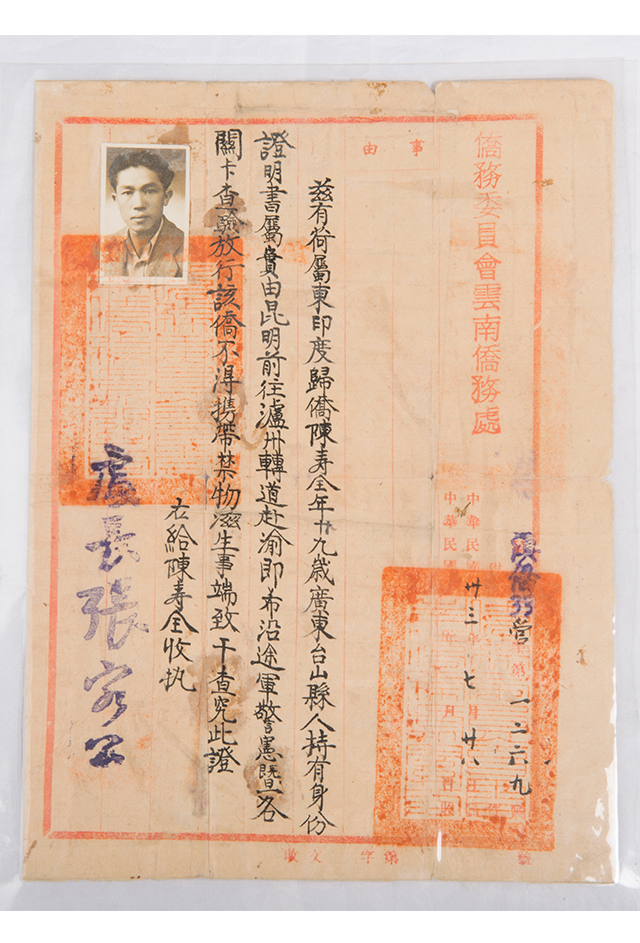 僑務委員會雲南僑務處
第二二六九
中華民國卅三年七月廿八
中華民國 年 月 日
事由
茲有荷屬東印度歸僑陳寿全年廿九歲廣東台山縣人持有身份
證明書屬實由昆明前往瀘州轉道赴渝即希沿途軍警憲暨各
關卡查驗放行該僑不淂携帶禁物滋生事端致干查究此證
右給陳寿全收执
處長張客公
字第
文
號